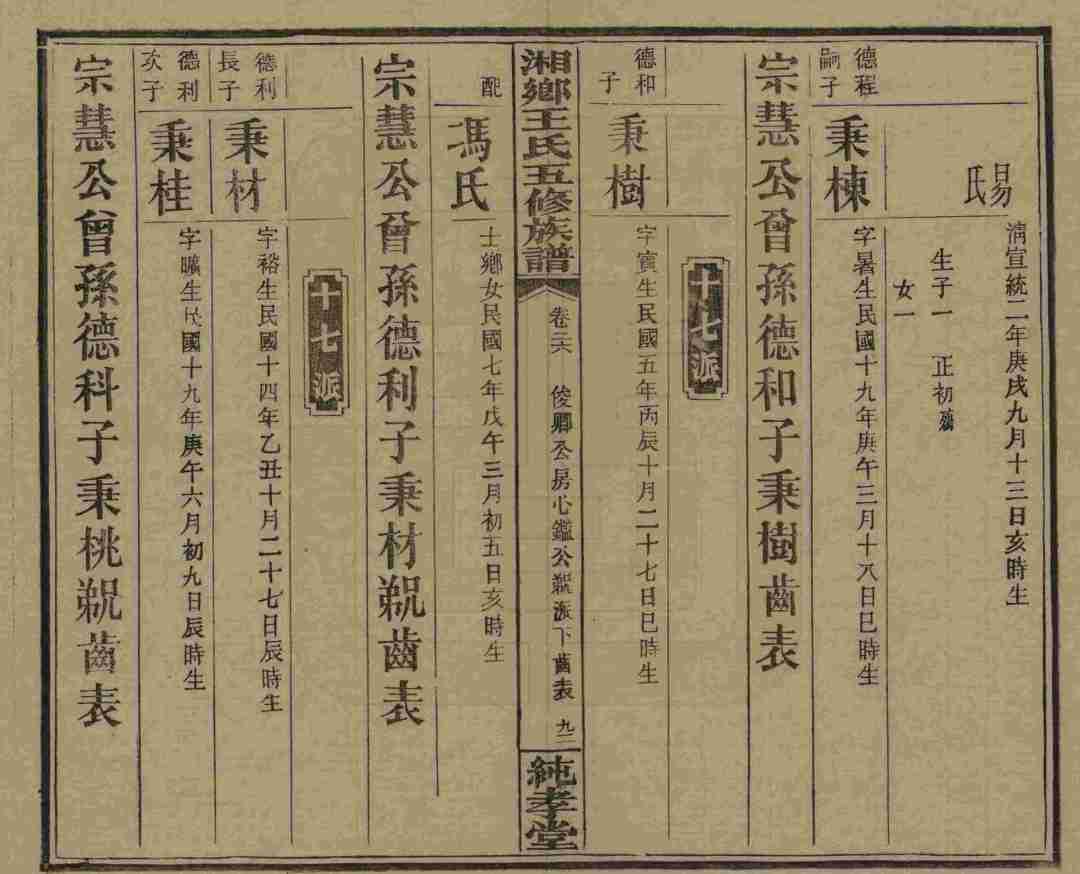 楊氏
清宣統二年庚戌九月十三日亥時生
生子一 正初殤
女一
德程嗣子
秉棟
字暑生民國十九年庚午三月十八日巳時生
宗慧公曾孫德和子秉樹齒表
十七派
德和子
秉樹
字賓生民國五年丙辰十月二十七日巳時生
湘鄉王氏五修族譜
卷三六 俊卿公房心鑑公覜派下齒表 九二
純孝堂
配
馮氏
士鄉女民國七年戊午三月初五日亥時生
宗慧公曾孫德利子秉材覜齒表
十七派
德利長子
秉材
字裕生民國十四年乙丑十月二十七日辰時生
德利次子
秉桂
字曠生民國十九年庚午六月初九日辰時生
宗慧公曾孫德科子秉桃覜齒表